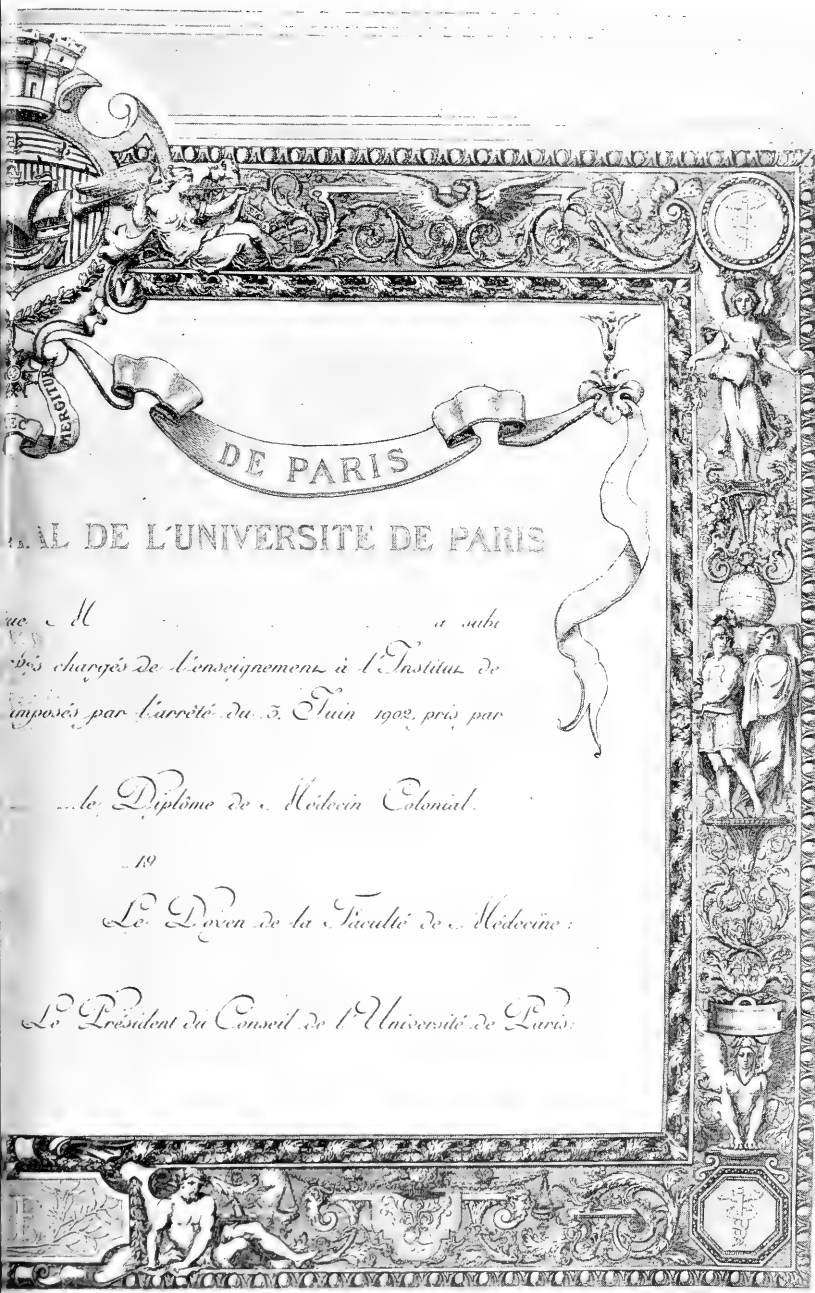 MERGITUR
EC
DE PARIS
AL DE L'UNIVERSITE DE PARIS
ue M a subi
chargés de l'enseignement à l'Institut de
imposés par l'arrêté du 3 Juin 1902, pris par
le Diplôme de Médecin Colonial.
19
Le Doyen de la Faculté de Médecine:
Le Président du Conseil de l'Université de Paris:
E